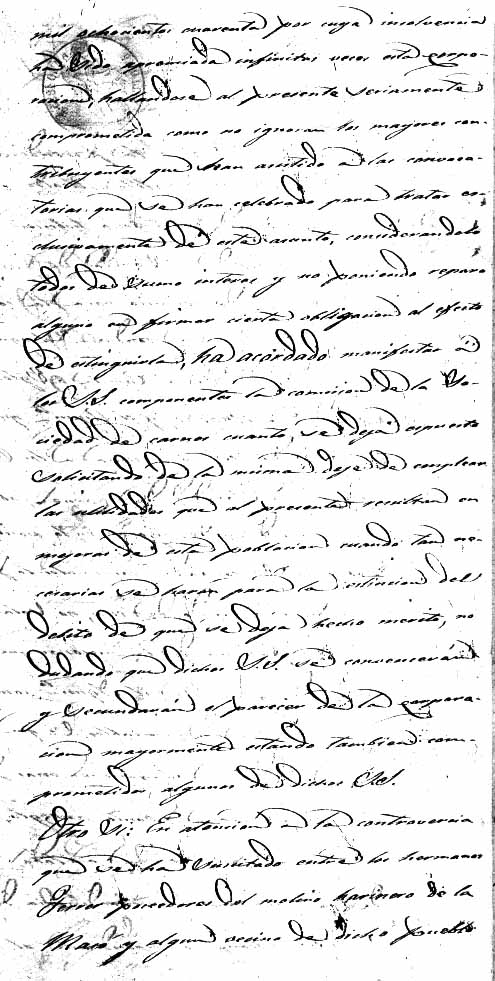 mil ochocientos cuarenta por cuya insolvencia
ha sido apremiada infinitas veces esta corpo-
racion, hallandose al presente seriamente
comprometida como no ignoran los mayores con-
tribuyentes que han asistido a las convoca-
torias que se han celebrado para tratar es-
clusivamente de este asunto, considerandolo
todos de sumo interes y no poniendo reparo
alguno en firmar cierta obligacion al efecto
de estinguirla, ha acordado manifestar a
los S.S. componentes la comision de la So-
ciedad de carnes cuanto se deja espuesto
solicitando de la misma deje de emplear
las utilidades que al presente resultan en
mejoras de esta poblacion cuando tan ne-
cesarias se hacen para la estincion del
debito de que se deja hecho merito, no
dudando que dichos S.S. se convenceran
y secundarán el parecer de la corpora-
cion mayormente estando tambien com-
prometidos algunos de dichos S.S.
Otro si: En atencion a la controversia
que se ha suscitado entre los hermanos
Ferrer poseedores del molino harinero de la
y algun vecino de dicho pueblo